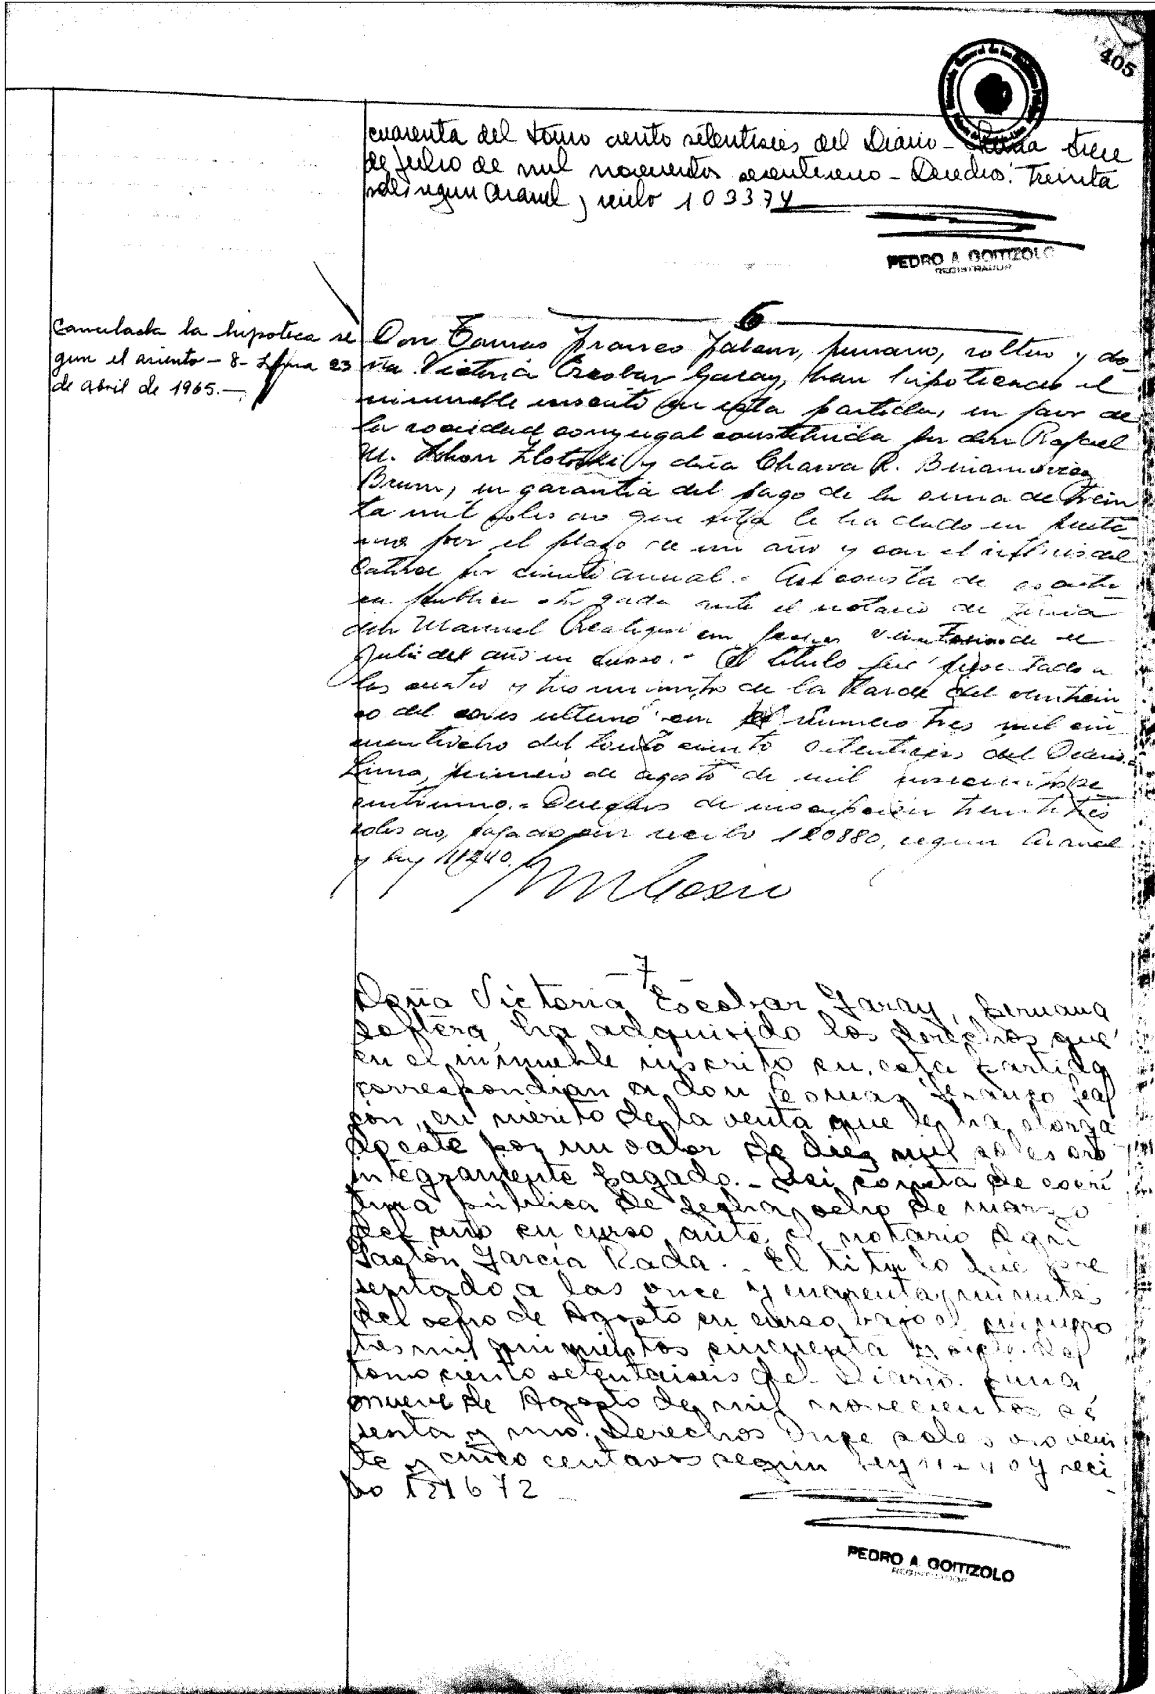 405
cuarenta del tomo ciento setentiseis del Diario - Lima trece
de julio de mil novecientos sesentiuno - Derechos: Treinta
soles según Arancel y recibo 103374
PEDRO A. GOITIZOLO
REGISTRADOR
Cancelada la hipoteca se
gun el asiento - 8 - Lima 23
de abril de 1965.-
6
Don Tomas Franco, peruano, soltero y do-
ña Victoria Escobar Garay, han hipotecado el
inmueble inscrito en esta partida, en favor de
la sociedad conyugal constituida por don Rafael
M. y doña Charva R.
Brum, en garantia del pago de la suma de trein
ta mil soles oro que esta le ha dado en presta
mo por el plazo de un año y con el interes del
catorce por ciento anual.- Asi consta de escritu
ra publica otorgada ante el notario de Lima
don Manuel en fecha de
Julio del año en curso.- El titulo fue presentado a
las cuatro y tres minutos de la tarde del
del mes ultimo con el numero tres mil cin
cuentiocho del tomo ciento setentiseis del Diario.-
Lima, primero de agosto de mil novecientos se
sentiuno.- Derechos de inscripcion trentitres
soles oro, pagados con recibo 120880, segun Arancel
y ley 11240.
- 7
Doña Victoria Escobar Garay, peruana
soltera, ha adquirido los derechos que
en el inmueble inscrito en esta partida
correspondian a don Tomas Franco
en merito de la venta que le ha otorga
do este por un valor de diez mil soles oro
integramente pagado.- Asi consta de escri
tura pública de fecha ocho de marzo
del año en curso ante el notario don
Gastón García Rada.- El titulo fue pre
sentado a las once y cuarenta minutos
del ocho de Agosto en curso bajo el numero
tres mil quinientos cincuenta y siete del
tomo ciento setentaiseis del Diario. Lima,
nueve de Agosto de mil novecientos se
senta y uno. Derechos Once soles oro vein
te y cinco centavos según ley 11240 y reci
bo 121672
PEDRO A. GOITIZOLO
REGISTRADOR